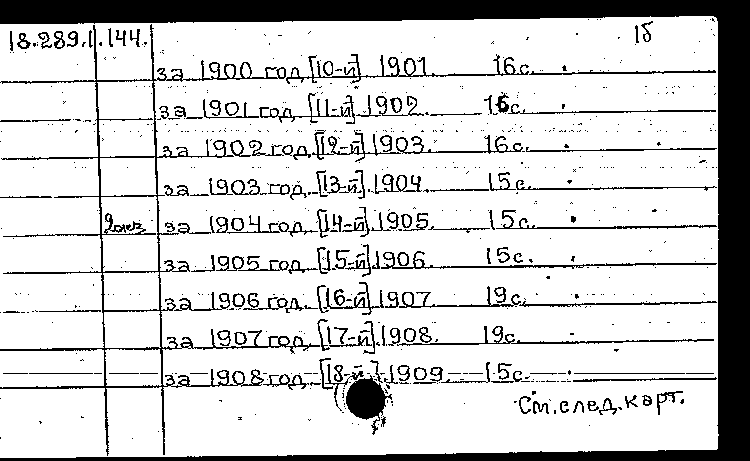 18.289.1.144. 1б
за 1900 год [10-й] 1901. 16с.
за 1901 год [11-й] 1902. 16с.
за 1902 год [12-й] 1903. 16с.
за 1903 год [13-й] 1904. 15с.
2 экз за 1904 год [14-й] 1905. 15с.
за 1905 год [15-й] 1906. 15с.
за 1906 год [16-й] 1907. 19с.
за 1907 год [17-й] 1908. 19с.
за 1908 год [18-й] 1909. 15с.
См. след. карт.